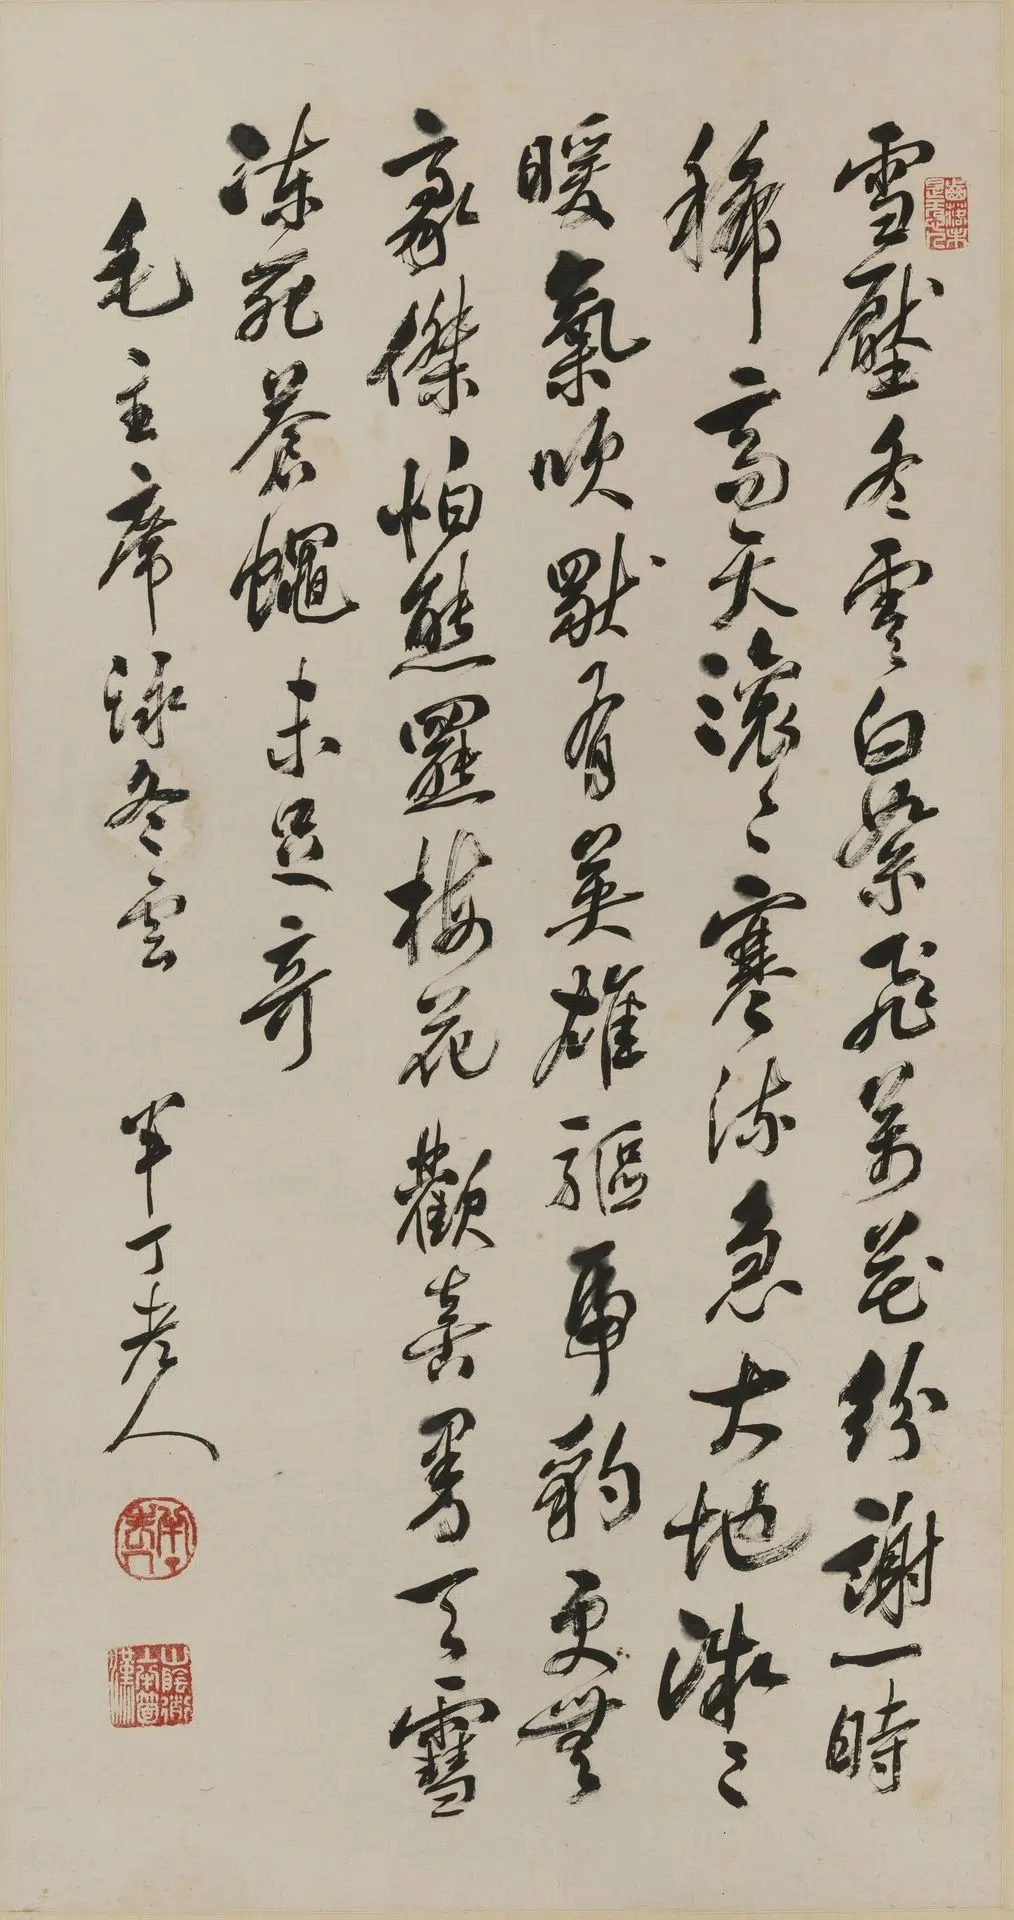 齒落未是無心人
雪壓冬雲白絮飛萬花紛謝一時
稀高天滾〻寒流急大地微〻
暖氣吹獨有英雄驅虎豹更無
豪傑怕熊羆梅花歡喜曼天雪
凍死蒼蠅未足奇
毛主席詠冬雲 半丁老人